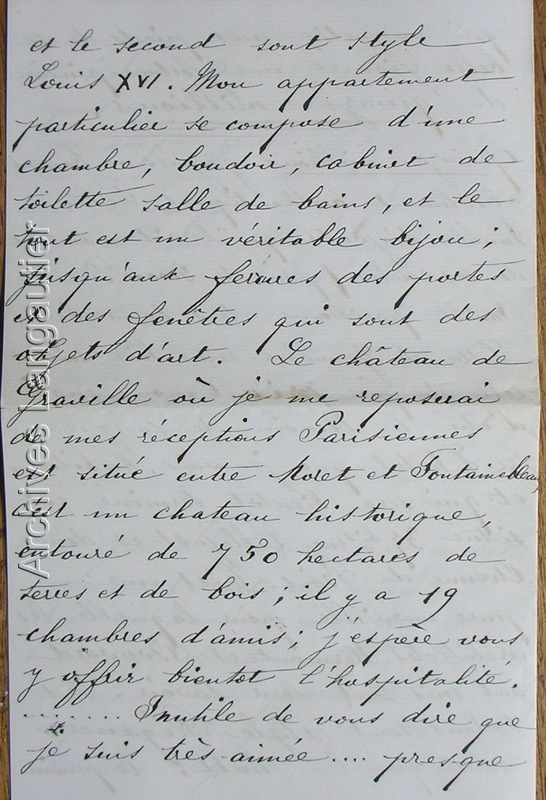 et le second sont style
Louis XVI. Mon appartement
particulier se compose d'une
chambre, boudoir, cabinet de
toilette salle de bains, et le
tout est un véritable bijou ;
jusqu'aux fermes des portes
et des fenêtres qui sont des
objets d'art. Le château de
Graville où je me reposerai
de mes réceptions Parisiennes
est situé entre Moret et Fontainebleau,
c'est un chateau historique,
entouré de 750 hectares de
terres et de bois ; il y a 19
chambres d'amis ; j'espère vous
y offrir bientot l'hospitalité.
........ Inutile de vous dire que
je suis très aimée .... presque
Archives Langautier